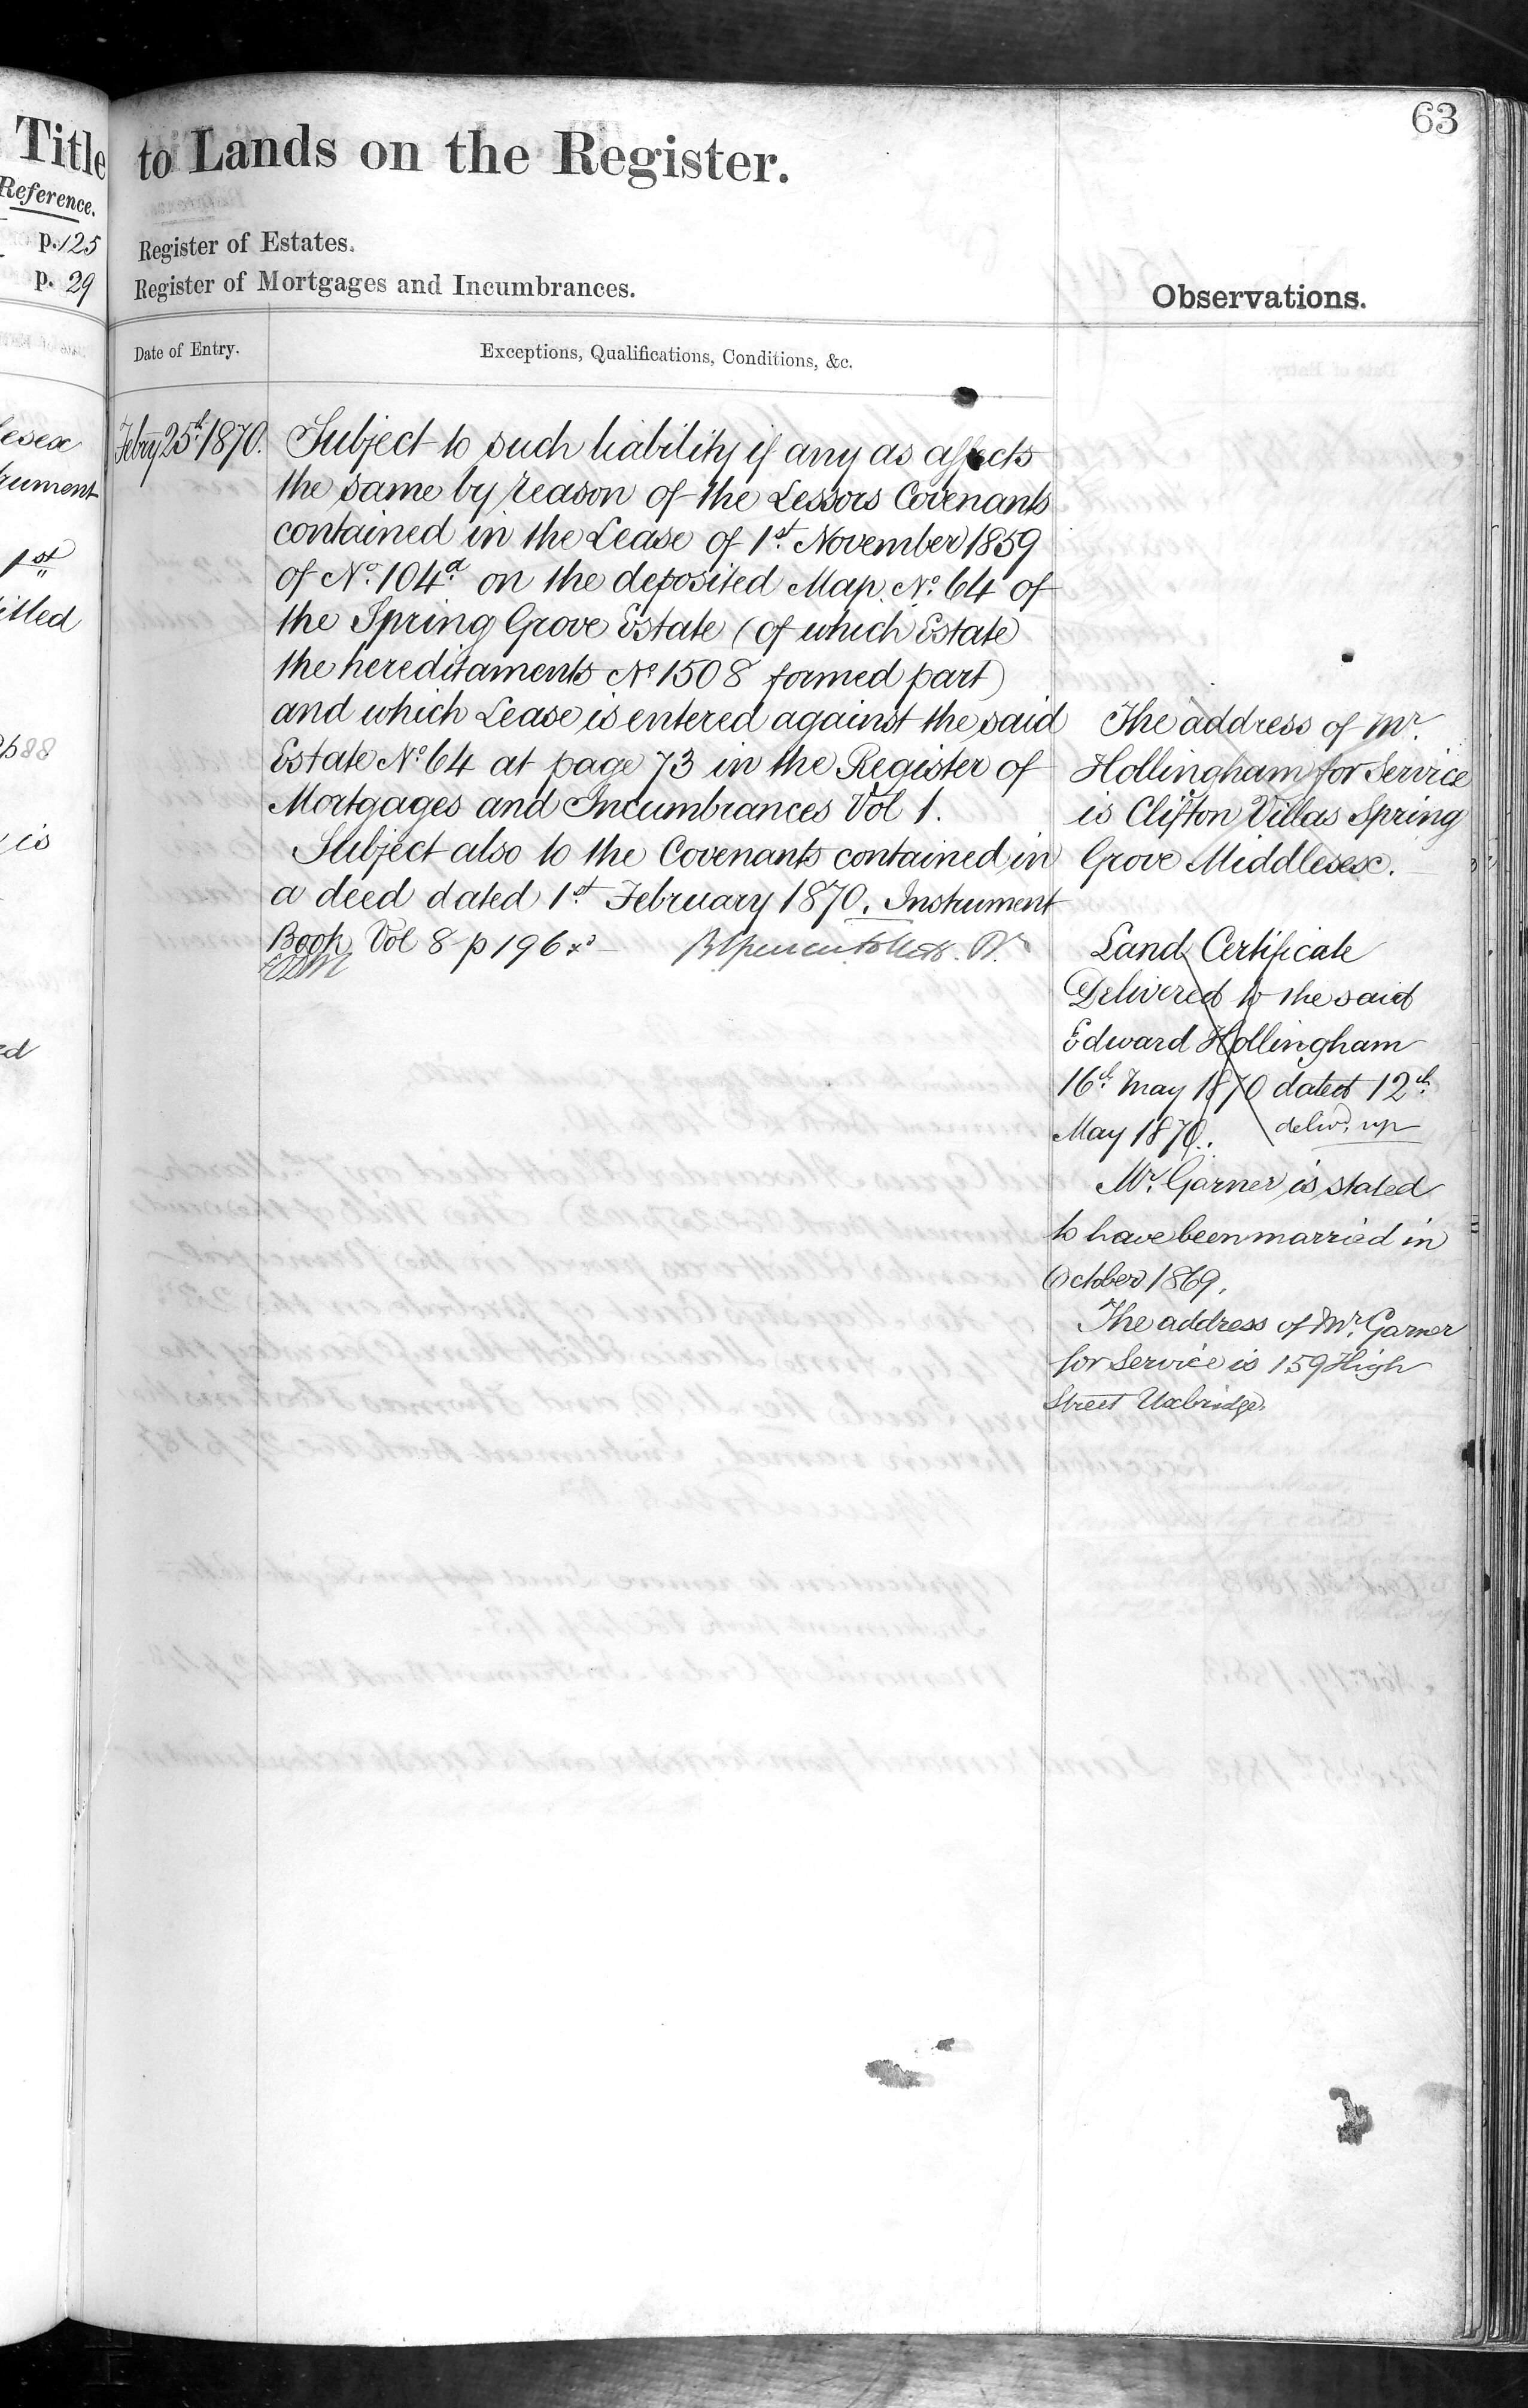 63
Title
Reference.
p. 125
p. 29
1st
is
to Lands on the Register.
Register of Estates.
Register of Mortgages and Incumbrances.
Observations.
Date of Entry.
Exceptions, Qualifications, Conditions, &c.
Febry 25th 1870.
Subject to such liability if any as affects
the same by reason of the Lessors Covenants
contained in the Lease of 1st November 1859
of No. 104a on the deposited Map No. 64 of
the Spring Grove Estate (of which Estate
the hereditaments No 1508 formed part)
and which Lease is entered against the said
Estate No. 64 at page 73 in the Register of
Mortgages and Incumbrances Vol 1.
Subject also to the Covenants contained in
a deed dated 1st February 1870. Instrument
Book Vol 8 p 196
The address of Mr.
Hollingham for Service
is Clifton Villas Spring
Grove Middlesex.
Land Certificate
Delivered to the said
Edward Hollingham
16th May 1870 dated 12th
May 1870. delivd. up
Mr. Garner is stated
to have been married in
October 1869.
The address of Mr. Garner
for Service is 159 High
Street Uxbridge.